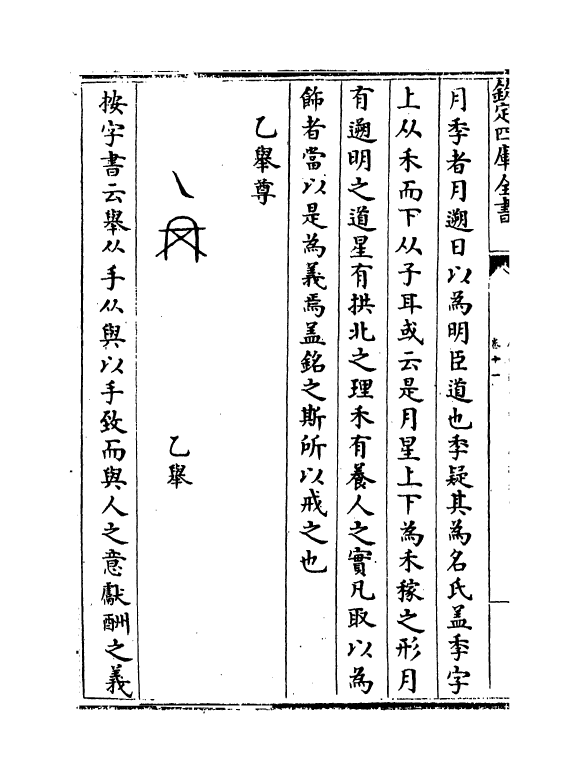 欽定四庫全書
卷十一
月季者月遡日以為明臣道也季疑其為名氏盖季字
上从禾而下从子耳或云是月星上下為禾稼之形月
有遡明之道星有拱北之理禾有養人之實凡取以為
飾者當以是為義焉盖銘之斯所以戒之也
乙舉尊
乙舉
按字書云舉从手从與以手致而與人之意獻酬之義